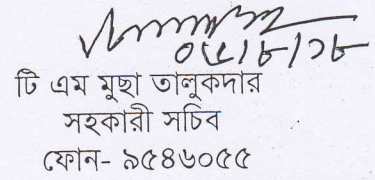 ০৫/৮/১৮
টি এম মুছা তালুকদার
সহকারী সচিব
ফোন- ৯৫৪৬০৫৫